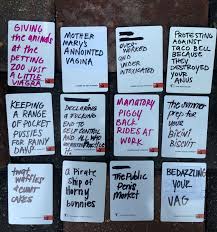 GIVING
the animals
at the
PETTING
ZOO JUST
A LITTLE
VIAGRA
MOTHER
MARY'S
ANNOINTED
VAGINA
OVER-
WORKED
AND
UNDER
INTOXICATED
PROTESTING
AGAINST
TACO BELL
BECAUSE
THEY
DESTROYED
YOUR
ANUS
KEEPING
A RANGE
OF POCKET
PUSSIES
FOR RAINY
DAMP
DECLARING
A FUCKING
END TO
SELF CONTROL
AND ALL WHO
PRACTICE
MANATORY
PIGGY
BACK
RIDES AT
WORK
the summer
PREP
for
your
BIKINI
BISCUIT
twat
waffles
& cunt
cakes
a Pirate
Ship of
Horny
bunnies
The Public
Penis
Market
BEDAZZLING
YOUR
VAG